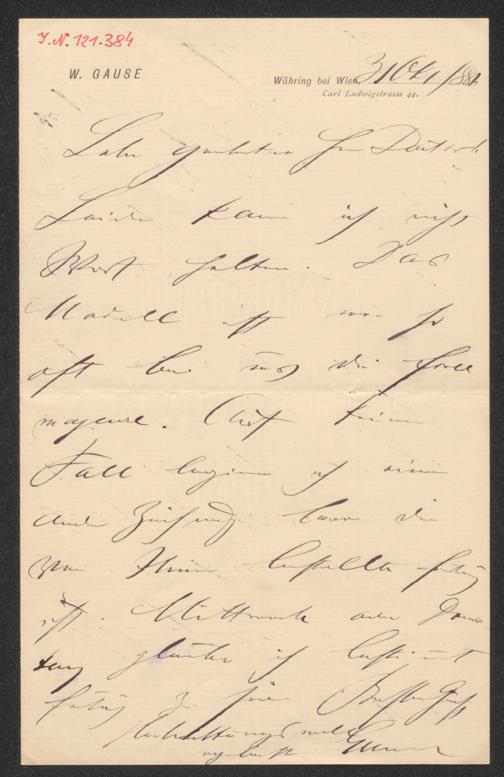 I.N. 121.384
W. GAUSE
Währing bei Wien, 31 Okt /88
Carl Ludwigstrasse 44.
Sehr geehrter Herr Deutsch
Leider kann ich nicht
Wort halten. Das
Modell ist wie so
oft bei uns die force
majeure. Auf keinen
Fall beginne ich eine
andere Zeichnung bevor die
von Ihnen bestellte fertig
ist. Mittwoch oder Donners
tag glaube ich bestimmt
fertig zu sein. Besten Gruß
Hochachtungsvoll
ergebenst Gause